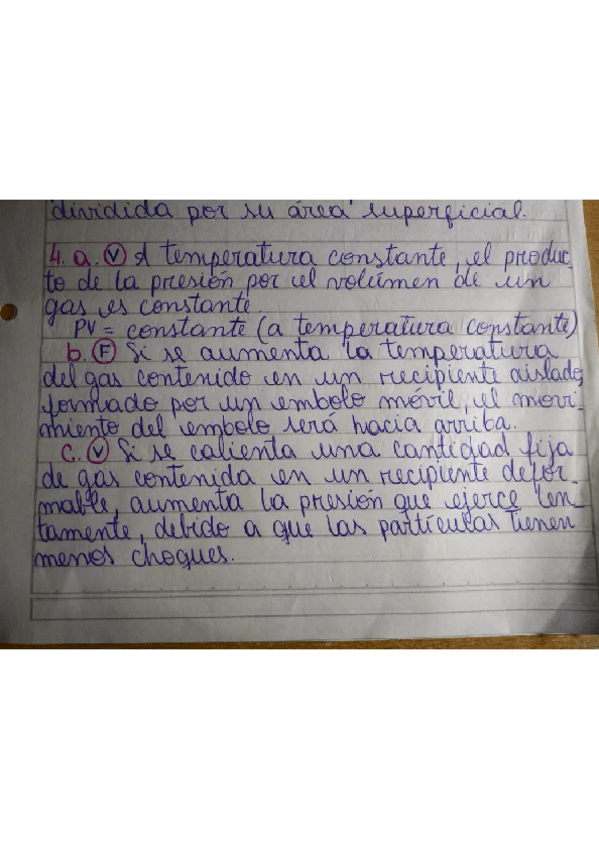 dividida por su área superficial.
4. a. V A temperatura constante, el produc_
to de la presión por el volúmen de un
gas es constante.
PV = constante (a temperatura constante)
b. F Si se aumenta la temperatura
del gas contenido en un recipiente aislado,
formado por un embolo móvil, el movi_
miento del embolo será hacia arriba.
c. V Si se calienta una cantidad fija
de gas contenida en un recipiente defor_
mable, aumenta la presión que ejerce len_
tamente, debido a que las partículas tienen
menos choques.